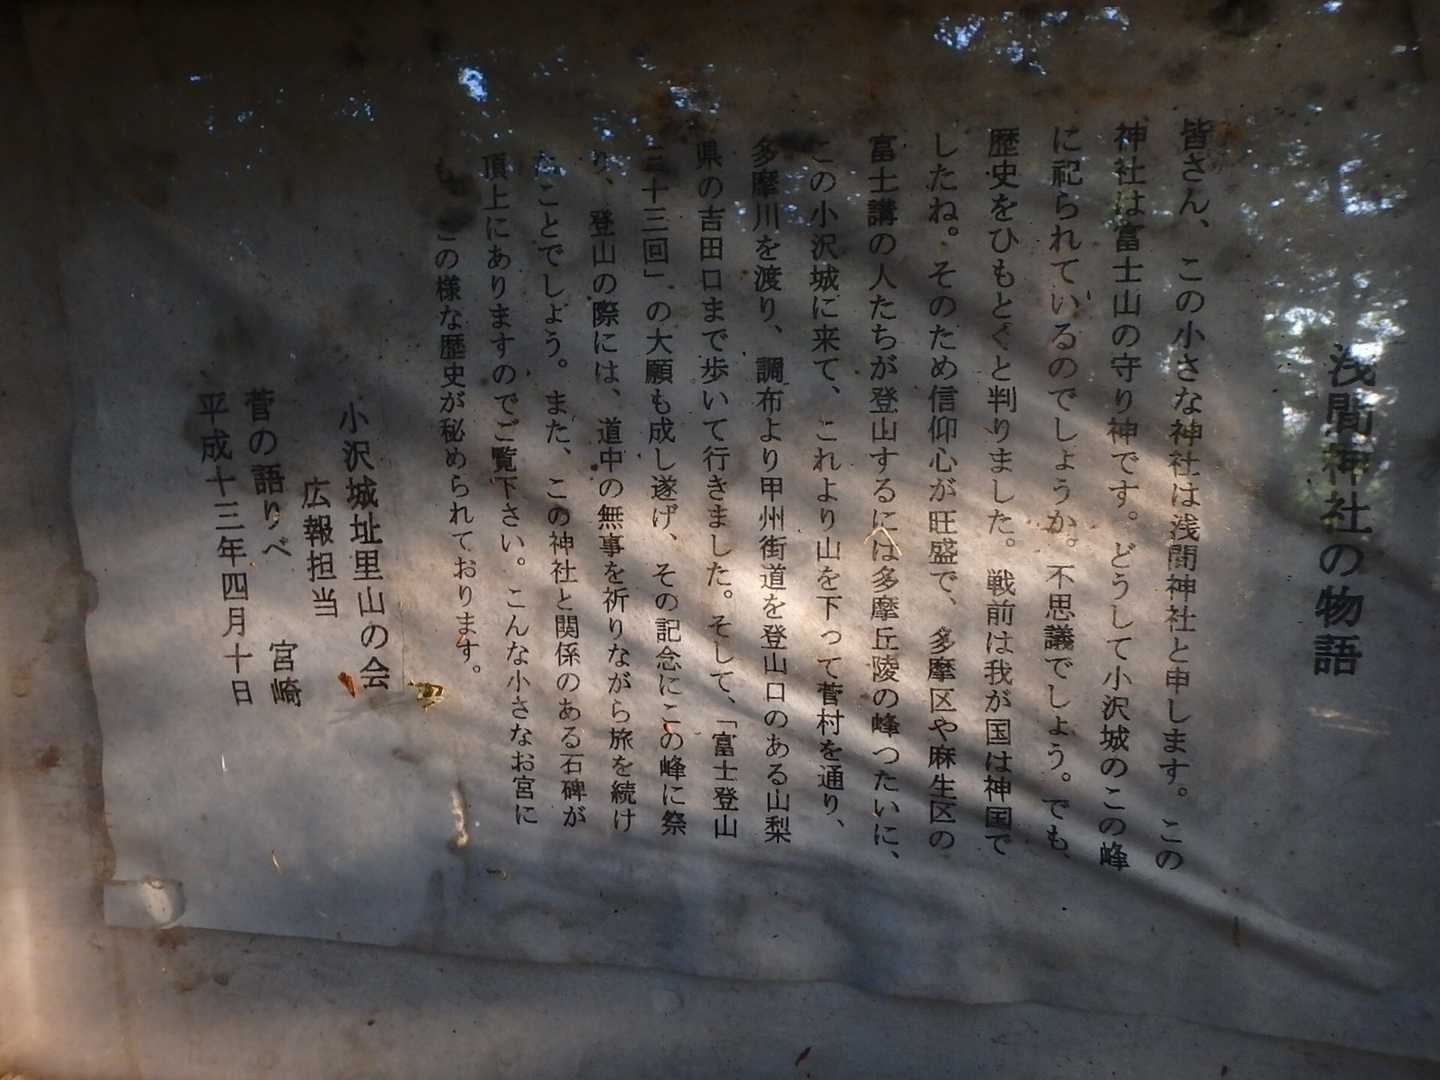 浅間神社の物語
皆さん、この小さな神社は浅間神社と申します。この
神社は富士山の守り神です。どうして小沢城のこの峰
に祀られているのでしょうか。不思議でしょう。でも、
歴史をひもとくと判りました。戦前は我が国は神国で
したね。そのため信仰心が旺盛で、多摩区や麻生区の
富士講の人たちが登山するには多摩丘陵の峰つたいに、
この小沢城に来て、これより山を下って菅村を通り、
多摩川を渡り、調布より甲州街道を登山口のある山梨
県の吉田口まで歩いて行きました。そして、「富士登山
三十三回」の大願も成し遂げ、その記念にこの峰に祭
り、登山の際には、道中の無事を祈りながら旅を続け
たことでしょう。また、この神社と関係のある石碑が
頂上にありますのでご覧下さい。こんな小さなお宮に
も、この様な歴史が秘められております。
小沢城址里山の会
広報担当
菅の語りべ 宮崎
平成十三年四月十日